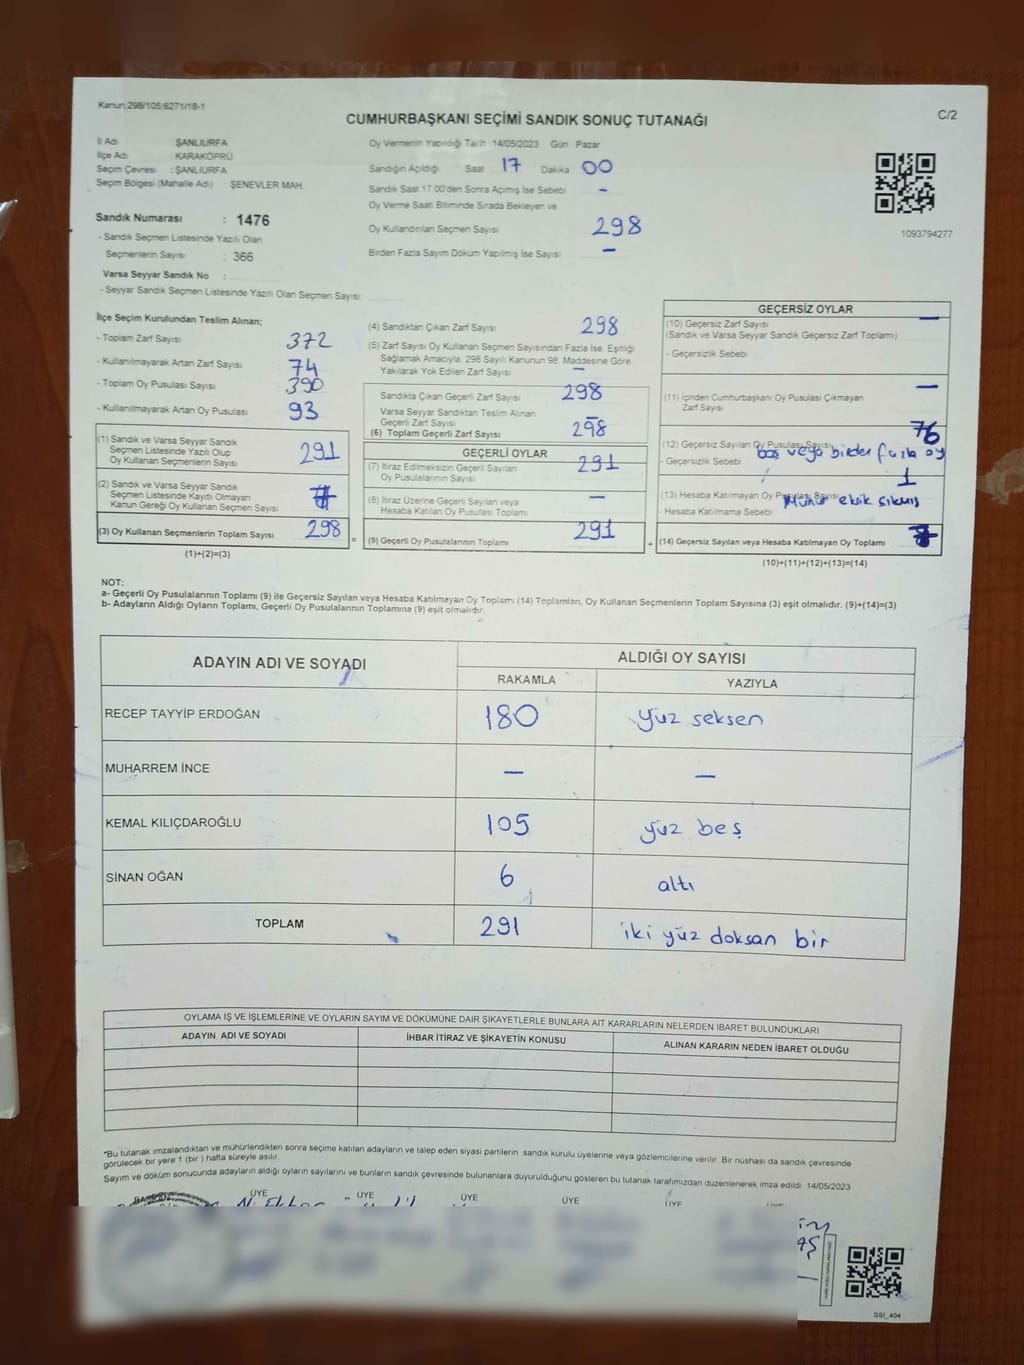 Kanun:298/105;6271/18-1
C/2
CUMHURBAŞKANI SEÇİMİ SANDIK SONUÇ TUTANAĞI
İl Adı : ŞANLIURFA
İlçe Adı : KARAKÖPRÜ
Seçim Çevresi : ŞANLIURFA
Seçim Bölgesi (Mahalle Adı) : ŞENEVLER MAH.
Sandık Numarası : 1476
- Sandık Seçmen Listesinde Yazılı Olan
Seçmenlerin Sayısı : 366
Varsa Seyyar Sandık No :
- Seyyar Sandık Seçmen Listesinde Yazılı Olan Seçmen Sayısı:
Oy Vermenin Yapıldığı Tarih 14/05/2023 Gün Pazar
Sandığın Açıldığı Saat 17 Dakika 00
Sandık Saat 17:00'den Sonra Açımış İse Sebebi -
Oy Verme Saati Bitiminde Sırada Bekleyen ve
Oy Kullandırılan Seçmen Sayısı 298
Birden Fazla Sayım Döküm Yapılmış İse Sayısı -
1093794277
İlçe Seçim Kurulundan Teslim Alınan;
- Toplam Zarf Sayısı 372
- Kullanılmayarak Artan Zarf Sayısı 74
- Toplam Oy Pusulası Sayısı 390
- Kullanılmayarak Artan Oy Pusulası 93
(1) Sandık ve Varsa Seyyar Sandık
Seçmen Listesinde Yazılı Olup
Oy Kullanan Seçmenlerin Sayısı 291
(2) Sandık ve Varsa Seyyar Sandık
Seçmen Listesinde Kayıtlı Olmayan
Kanun Gereği Oy Kullanan Seçmen Sayısı 7
(3) Oy Kullanan Seçmenlerin Toplam Sayısı 298
(1)+(2)=(3)
(4) Sandıktan Çıkan Zarf Sayısı 298
(5) Zarf Sayısı Oy Kullanan Seçmen Sayısından Fazla İse, Eşitliği
Sağlamak Amacıyla, 298 Sayılı Kanunun 98. Maddesine Göre
Yakılarak Yok Edilen Zarf Sayısı -
Sandıkta Çıkan Geçerli Zarf Sayısı 298
Varsa Seyyar Sandıktan Teslim Alınan
Geçerli Zarf Sayısı -
(6) Toplam Geçerli Zarf Sayısı 298
GEÇERLİ OYLAR
(7) İtiraz Edilmeksizin Geçerli Sayılan
Oy Pusulalarının Sayısı 291
(8) İtiraz Üzerine Geçerli Sayılan veya
Hesaba Katılan Oy Pusulası Toplamı -
= (9) Geçerli Oy Pusulalarının Toplamı 291 +
GEÇERSİZ OYLAR
(10) Geçersiz Zarf Sayısı -
(Sandık ve Varsa Seyyar Sandık Geçersiz Zarf Toplamı)
- Geçersizlik Sebebi
(11) İçinden Cumhurbaşkanı Oy Pusulası Çıkmayan -
Zarf Sayısı
(12) Geçersiz Sayılan Oy Pusulası Sayısı
- Geçersizlik Sebebi boş veya birden fazla oy
1
(13) Hesaba Katılmayan Oy Pusulası Sayısı
- Hesaba Katılmama Sebebi Mühür eksik çıkmış
(14) Geçersiz Sayılan veya Hesaba Katılmayan Oy Toplamı 7
(10)+(11)+(12)+(13)=(14)
NOT:
a- Geçerli Oy Pusulalarının Toplamı (9) ile Geçersiz Sayılan veya Hesaba Katılmayan Oy Toplamı (14) Toplamları, Oy Kullanan Seçmenlerin Toplam Sayısına (3) eşit olmalıdır. (9)+(14)=(3)
b- Adayların Aldığı Oyların Toplamı, Geçerli Oy Pusulalarının Toplamına (9) eşit olmalıdır.
ADAYIN ADI VE SOYADI
ALDIĞI OY SAYISI
RAKAMLA YAZIYLA
RECEP TAYYİP ERDOĞAN 180 yüz seksen
MUHARREM İNCE - -
KEMAL KILIÇDAROĞLU 105 yüz beş
SİNAN OĞAN 6 altı
TOPLAM 291 iki yüz doksan bir
OYLAMA İŞ VE İŞLEMLERİNE VE OYLARIN SAYIM VE DÖKÜMÜNE DAİR ŞİKAYETLERLE BUNLARA AİT KARARLARIN NELERDEN İBARET BULUNDUKLARI
ADAYIN ADI VE SOYADI İHBAR İTİRAZ VE ŞİKAYETİN KONUSU ALINAN KARARIN NEDEN İBARET OLDUĞU
*Bu tutanak imzalandıktan ve mühürlendikten sonra seçime katılan adayların ve talep eden siyasi partilerin sandık kurulu üyelerine veya gözlemcilerine verilir. Bir nüshası da sandık çevresinde
görülecek bir yere 1 (bir ) hafta süreyle asılır.
Sayım ve döküm sonucunda adayların aldığı oyların sayılarını ve bunların sandık çevresinde bulunanlara duyurulduğunu gösteren bu tutanak tarafımızdan düzenlenerek imza edildi. 14/05/2023
BAŞKAN ÜYE ÜYE ÜYE ÜYE ÜYE ÜYE
SSI_404